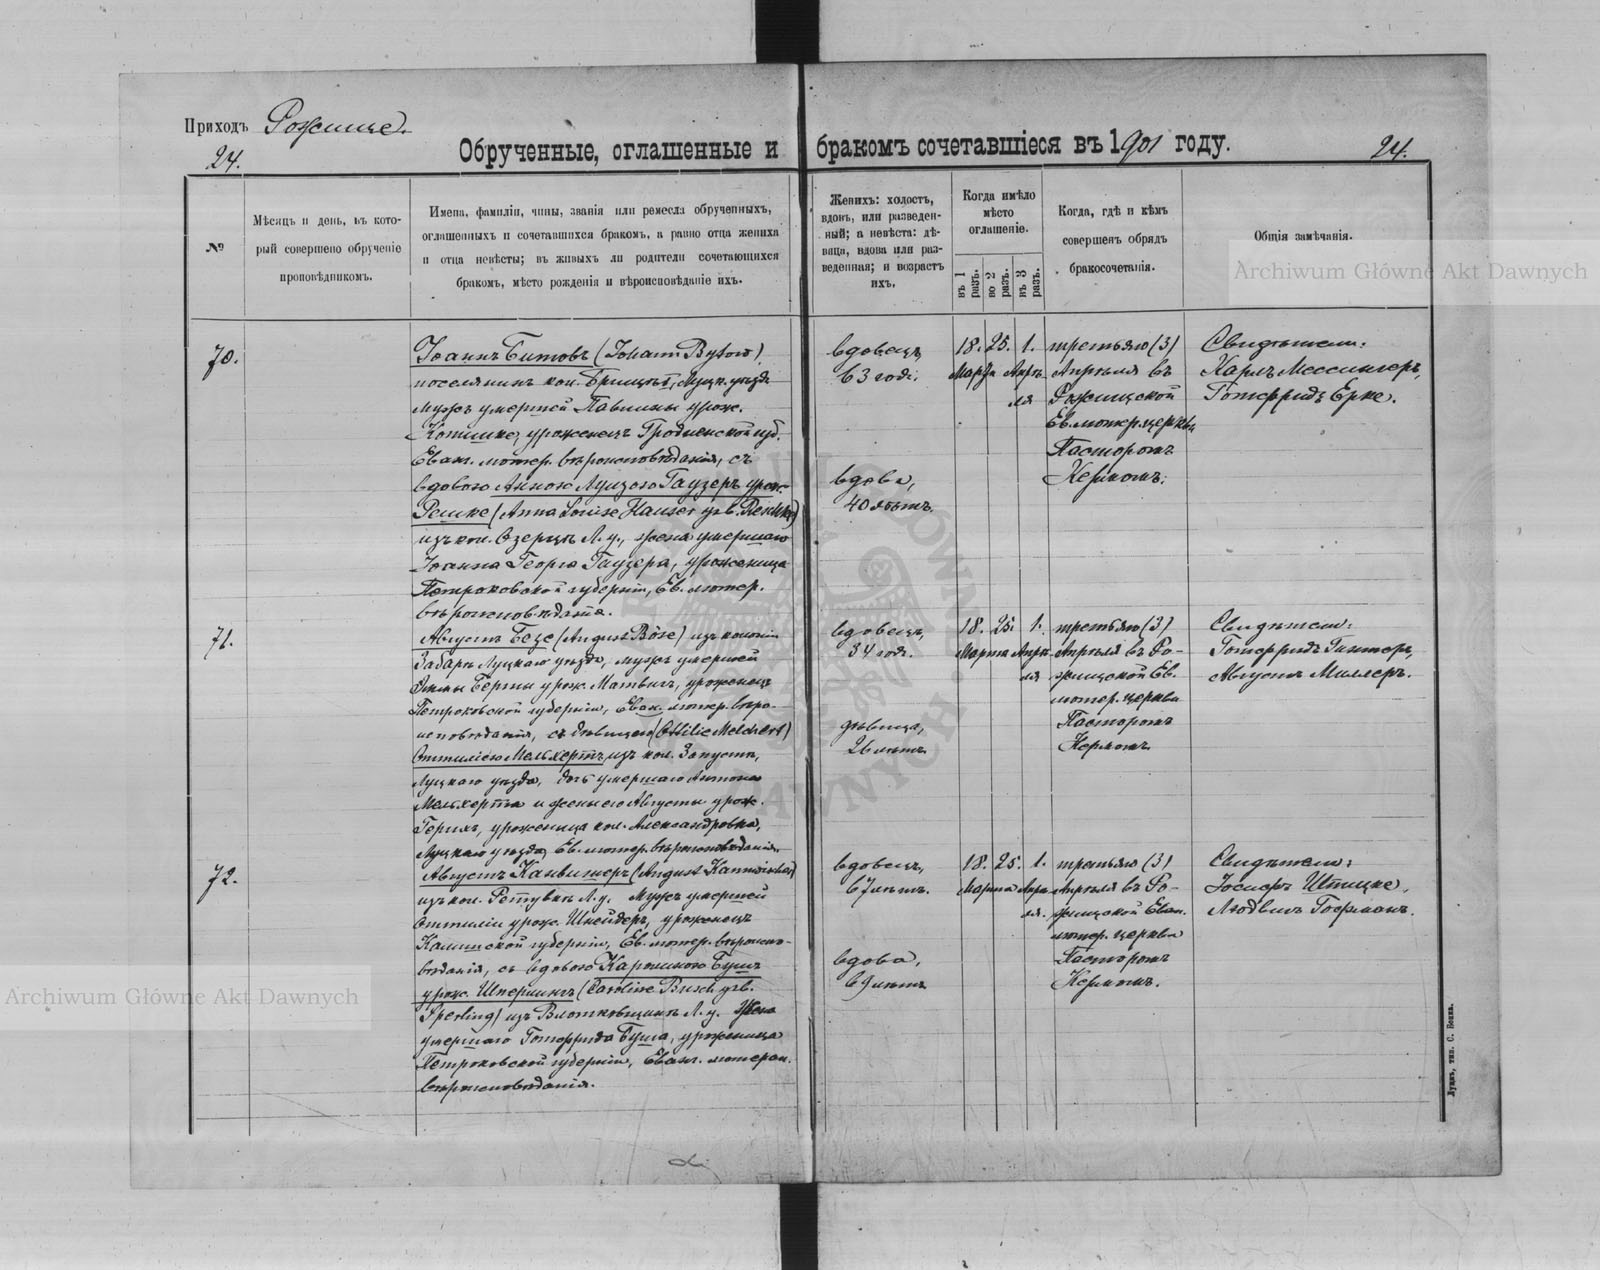 Приходъ Рожище.
24.
Обрученные, оглашенные и бракомъ сочетавшіеся въ 1901 году.
24.
№
Мѣсяцъ и день, въ кото-
рый совершено обрученіе
проповѣдникомъ.
Имена, фамиліи, чины, званія или ремесла обрученныхъ,
оглашенныхъ и сочетавшихся бракомъ, а равно отца жениха
и отца невѣсты; въ живыхъ ли родители сочетающихся
бракомъ, мѣсто рожденія и вѣроисповѣданіе ихъ.
Женихъ: холостъ,
вдовъ, или разведен-
ный; а невѣста: дѣ-
вица, вдова или раз-
веденная; и возрастъ
ихъ.
Когда имѣло
мѣсто
оглашеніе.
въ 1 разъ.
во 2 разъ.
въ 3 разъ.
Когда, гдѣ и кѣмъ
совершенъ обрядъ
бракосочетанія.
Общія замѣчанія.
Archiwum Główne Akt Dawnych
70.
Іоаннъ Битовъ (Johann Bytow)
поселянинъ кол. Луцк. уѣзда
мужъ умершей Павлины урож.
урожденецъ Гродненской губ.
Еван. лютер. вѣроисповѣданія, съ
вдовою Анною Луизою Гаузеръ урож.
Решке (Anna Louise Hauser geb. Reschke)
изъ кол. Озерцъ Л. у., жена умершаго
Іоанна Георга Гаузера, уроженица
Петроковской губерніи, Ев. лютер.
вѣроисповѣданія.
вдовецъ,
63 годъ.
вдова,
40 лѣтъ.
18. 25. 1.
Марта Апрѣ-
ля
третьяго (3)
Апрѣля въ
Рожищской
Ев. лютер. церкви
Пасторомъ
Керномъ.
Свидѣтели:
Карлъ Мессингеръ,
Готфридъ Ерке.
71.
Августъ Безе (August Böse) изъ колоніи
Забара Луцкаго уѣзда, мужъ умершей
Берты урож. Матвигъ, уроженецъ
Петроковской губерніи, Еван. лютер. вѣро-
исповѣданія, съ дѣвицею (Ottilie Melchert)
Оттиліею Мельхертъ изъ кол. Запустъ,
Луцкаго уѣзда, дочь умершаго Антона
Мельхерта и жены его Августы урож.
Герихъ, уроженица кол. Александровка,
Луцкаго уѣзда, Ев. лютер. вѣроисповѣданія.
вдовецъ,
34 годъ.
дѣвица,
26 лѣтъ.
18. 25. 1.
Марта Апрѣ-
ля
третьяго (3)
Апрѣля въ Ро-
жищской Ев.
лютер. церкви
Пасторомъ
Керномъ
Свидѣтели:
Готфридъ Гинтеръ,
Августъ Миллеръ.
72.
Августъ Канвишеръ (August Kanwischer)
изъ кол. Л. у. Мужъ умершей
Оттиліи урож. Шнейдеръ, уроженецъ
Калишской губерніи, Ев. лютер. вѣроиспо-
вѣданія, съ вдовою Каролиною Бушъ
урож. Шперлингъ (Caroline Busch geb.
Sperling) изъ Л. у. Жена
умершаго Готфрида Буша, уроженица
Петроковской губерніи, Еван. лютеран.
вѣроисповѣданія.
вдовецъ,
67 лѣтъ.
вдова,
69 лѣтъ
18. 25. 1.
Марта Апрѣ-
ля.
третьяго (3)
Апрѣля въ Ро-
жищской Еван.
лютер. церкви
Пасторомъ
Керномъ.
Свидѣтели:
Іосифъ Шпицке,
Людвигъ Гофманъ.
Archiwum Główne Akt Dawnych
Луцкъ, тип. С. Бокка.